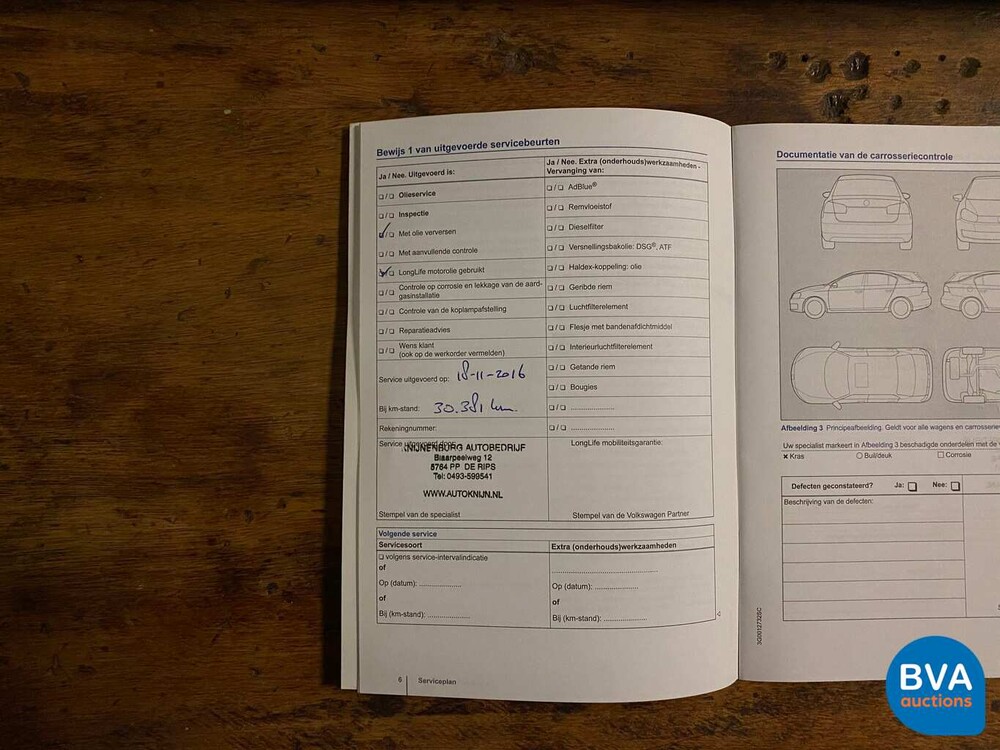 Bewijs 1 van uitgevoerde servicebeurten
Ja / Nee. Uitgevoerd is:
❑ / ❑ Olieservice
❑ / ❑ Inspectie
❑ / ❑ Met olie verversen
❑ / ❑ Met aanvullende controle
❑ / ❑ LongLife motorolie gebruikt
❑ / ❑ Controle op corrosie en lekkage van de aard-
gasinstallatie
❑ / ❑ Controle van de koplampafstelling
❑ / ❑ Reparatieadvies
❑ / ❑ Wens klant
(ook op de werkorder vermelden)
Service uitgevoerd op: 18-11-2016
Bij km-stand: 30.381 km.
Rekeningnummer:
Service uitgevoerd door:
KNIJNENBURG AUTOBEDRIJF
Blaarpeelweg 12
5764 PP DE RIPS
Tel: 0493-599541
WWW.AUTOKNIJN.NL
Stempel van de specialist
Ja / Nee. Extra (onderhouds)werkzaamheden -
Vervanging van:
❑ / ❑ AdBlue®
❑ / ❑ Remvloeistof
❑ / ❑ Dieselfilter
❑ / ❑ Versnellingsbakolie: DSG®, ATF
❑ / ❑ Haldex-koppeling: olie
❑ / ❑ Geribde riem
❑ / ❑ Luchtfilterelement
❑ / ❑ Flesje met bandenafdichtmiddel
❑ / ❑ Interieurluchtfilterelement
❑ / ❑ Getande riem
❑ / ❑ Bougies
❑ / ❑ ......................
❑ / ❑ ......................
LongLife mobiliteitsgarantie:
Stempel van de Volkswagen Partner
Volgende service
Servicesoort
❑ volgens service-intervalindicatie
of
Op (datum): ......................
of
Bij (km-stand): ......................
Extra (onderhouds)werkzaamheden
......................
Op (datum): ......................
of
Bij (km-stand): ......................
6 Serviceplan
Documentatie van de carrosseriecontrole
Afbeelding 3 Principeafbeelding. Geldt voor alle wagens en carrosserie
Uw specialist markeert in Afbeelding 3 beschadigde onderdelen met de
× Kras
○ Buil/deuk
☐ Corrosie
Defecten geconstateerd? Ja: ❑ Nee: ❑
Beschrijving van de defecten:
3G0012732SC
BVA
auctions